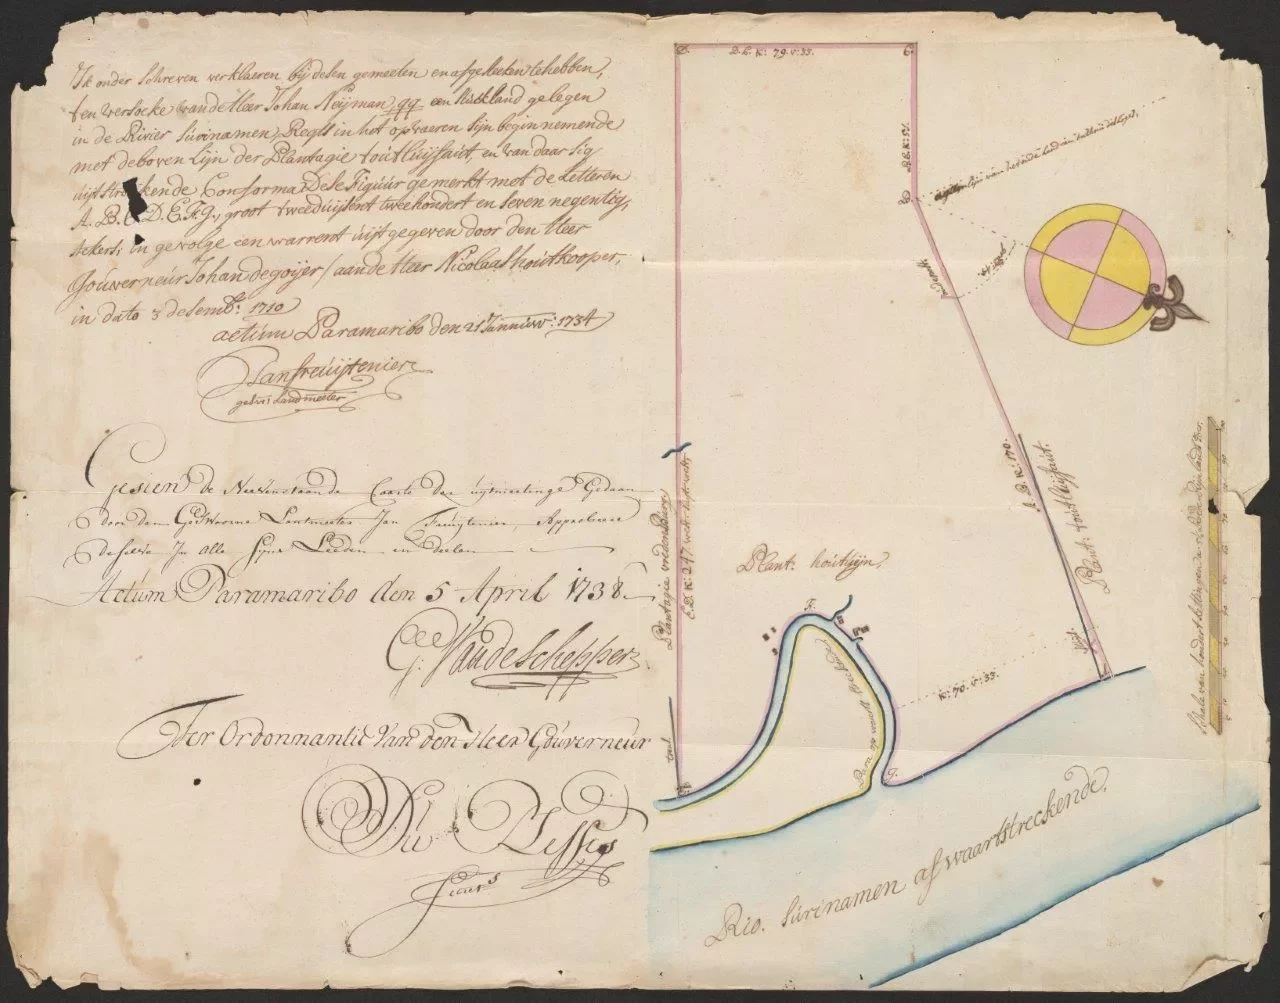 Ik onder schreven verklaeren bij desen gemeeten en afgesteeken te hebben,
ten versoecke van de Heer Johan Neijman qq een stuk land gelegen
in de Rivier Surinamen, Regts in het opvaeren sijn begin nemende
met de boven Lijn der Plantagie toutluijfaut, en van daar sig
uijtstreckende Conforma Dese Figuur gemerkt met de Letteren
A. B. C. D. E. F. G., groot tweeduijsent tweehondert en seven negentig,
ackers; in gevolge een warrent uijt gegeven door den Heer
Gouverneur Johan de goijer / aan de Heer Nicolaas houtkooper,
in dato 3 desemb: 1710
actum Paramaribo den 21 Jannuw: 1734
gesw: Landmeeter
Gesien de Neevenstaande Caarte der uijtmeetinge Gedaan
door den Geswoorne Lantmeeter Jan Freuijtenier, Approbeere
deselve In alle syne Leeden en deelen
Actum Paramaribo den 5 April 1738
G: Van de Schepper
Ter Ordonnantie Van den Heer Gouverneur
Du Plessis
Secrs
D. C. K: 79. v: 33.
C.
B.
A. B. K: 170.
Plant: toutluijfaut.
Plantagie vredenburg
E. D. K: 247.
Plant: houttuijn.
F.
K: 70. v: 33.
Para op waarts streckende
G.
E.
Rio. Surinamen afwaartstreckende.